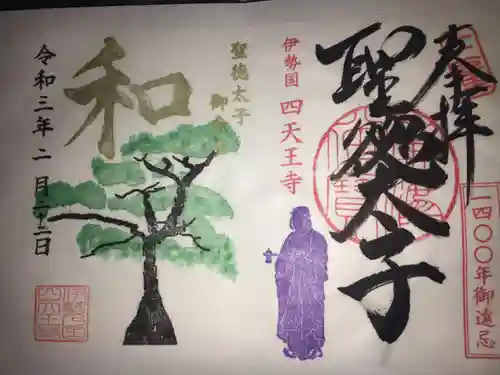 奉拝
一四〇〇年御遠忌
聖徳太子
伊勢国 四天王寺
聖徳太子
和
令和三年二月二十二日